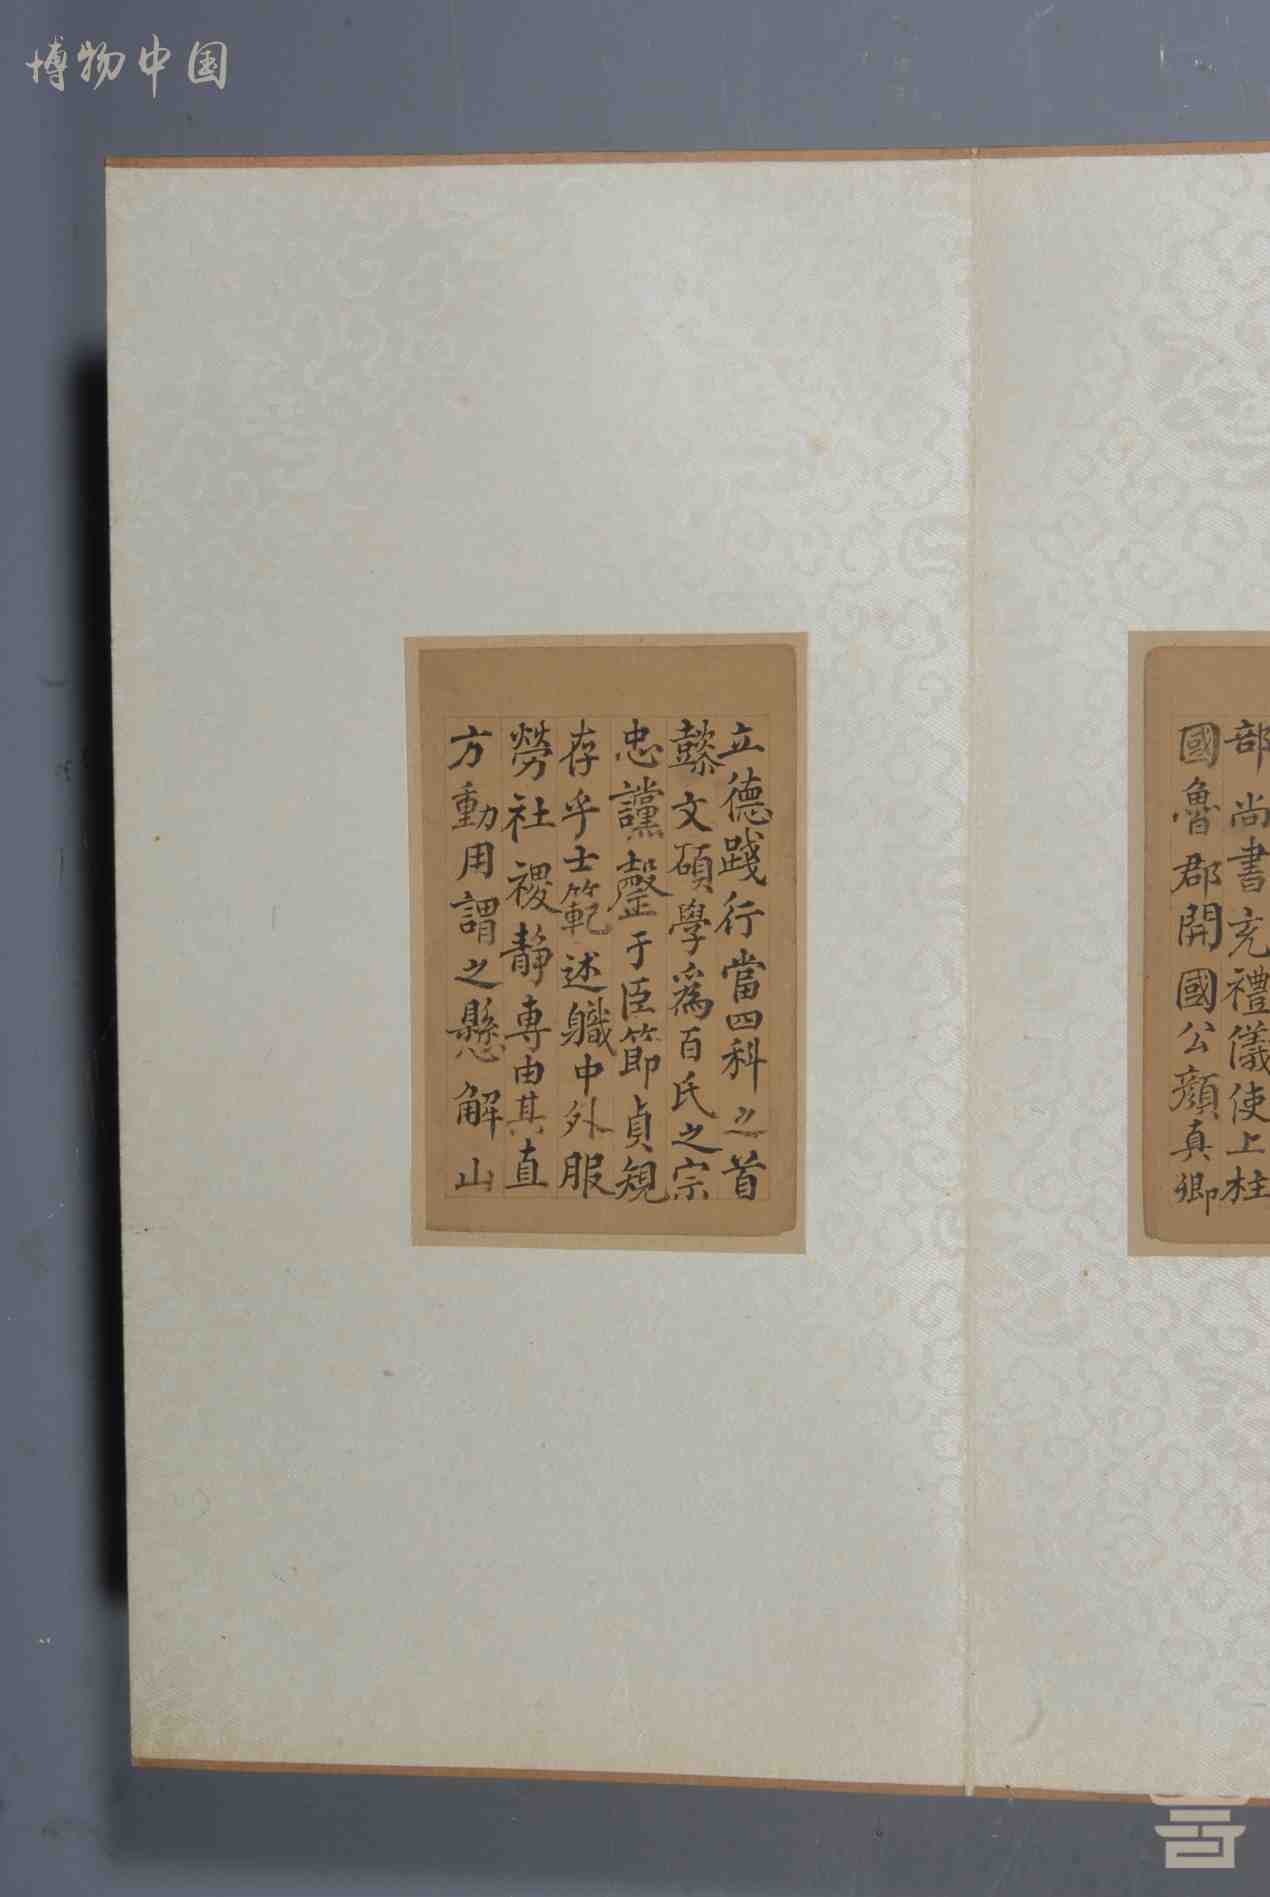 博物中国
部尚書充禮儀使上柱
國魯郡開國公顏真卿
立德踐行當四科之首
懿文碩學爲百氏之宗
忠讜罄于臣節貞規
存乎士範述職中外服
勞社稷靜專由其直
方動用謂之懸解山